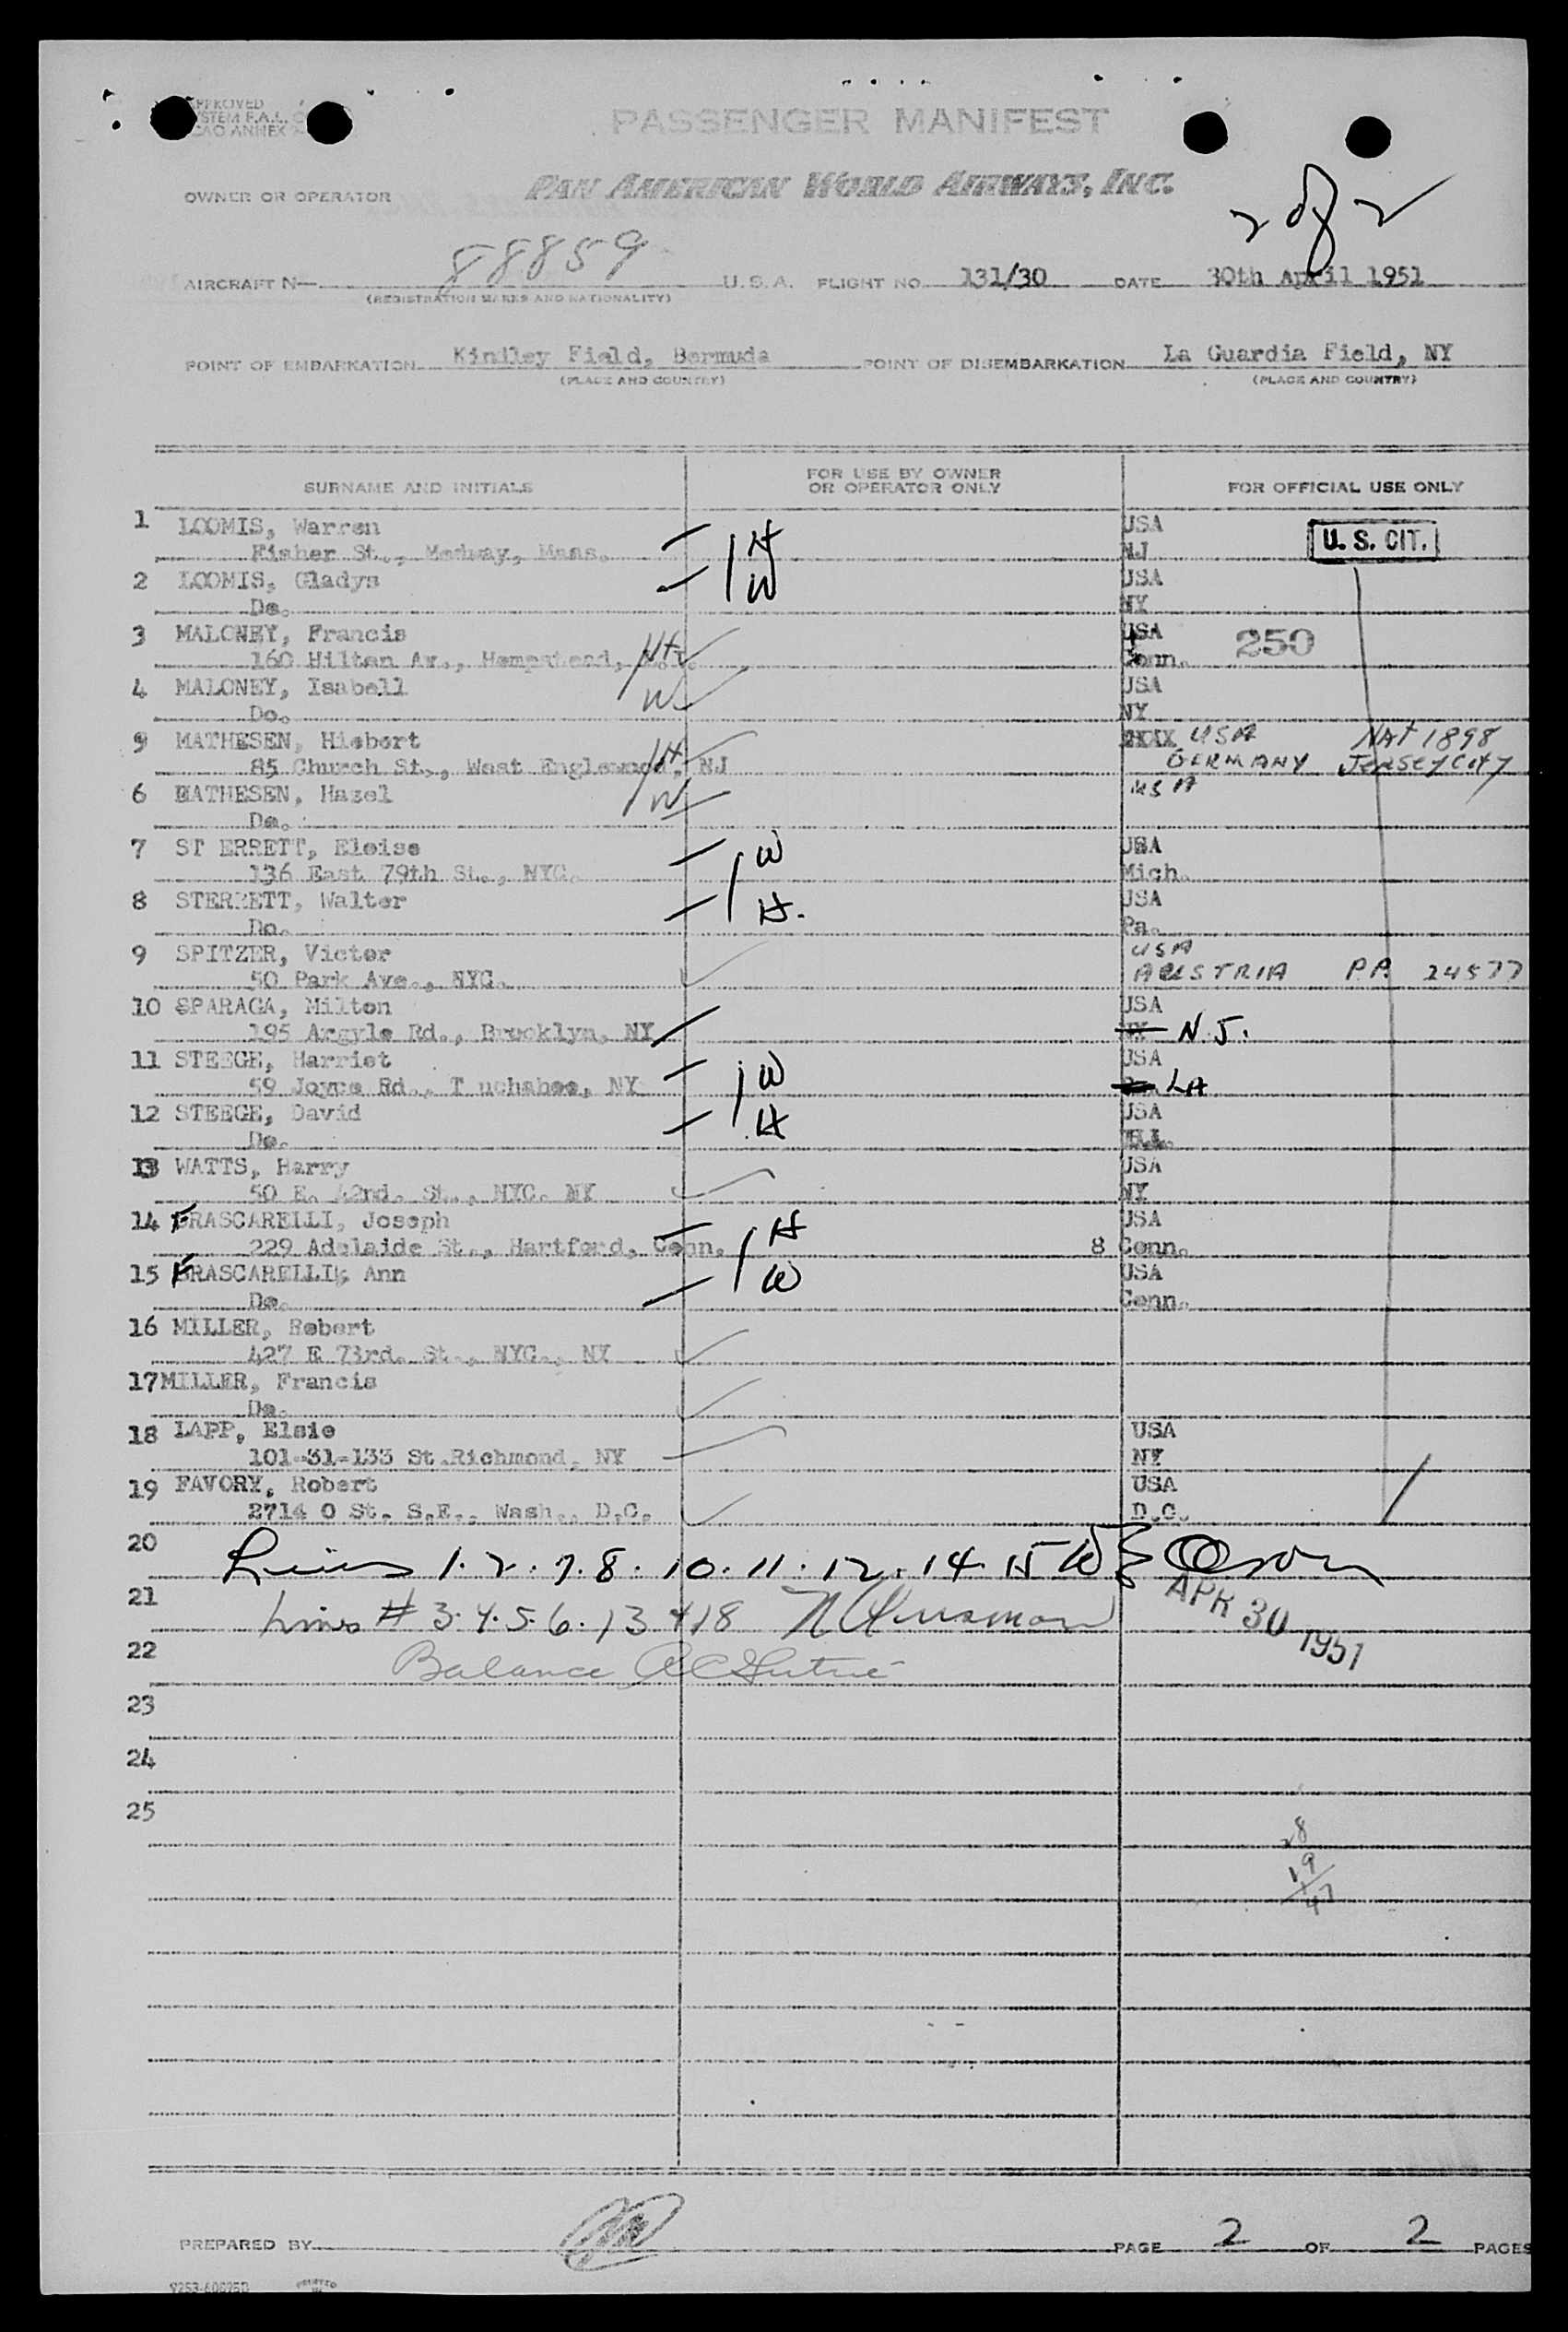 APPROVED
SYSTEM F.A.L.
ICAO ANNEX
PASSENGER MANIFEST
OWNER OR OPERATOR PAN AMERICAN WORLD AIRWAYS, INC.
2 of 2
AIRCRAFT N— 88859 U.S.A. FLIGHT NO. 131/30 DATE 30th April 1951
(REGISTRATION MARKS AND NATIONALITY)
POINT OF EMBARKATION Kindley Field, Bermuda POINT OF DISEMBARKATION La Guardia Field, NY
(PLACE AND COUNTRY) (PLACE AND COUNTRY)
SURNAME AND INITIALS FOR USE BY OWNER OR OPERATOR ONLY FOR OFFICIAL USE ONLY
1 LOOMIS, Warren H USA U. S. CIT.
Fisher St., Medway, Mass. NJ
2 LOOMIS, Gladys W USA
Do. NY
3 MALONEY, Francis H USA 250
160 Hilton Av., Hempstead, Conn.
4 MALONEY, Isabell W USA
Do. NY
9 MATHESEN, Hiebert H USA NAT 1898
85 Church St., West Englewood, NJ GERMANY JERSEY CITY
6 MATHESEN, Hazel W USA
Do.
7 ST ERRETT, Eloise W USA
136 East 79th St., NYC. Mich.
8 STERRETT, Walter H. USA
Do. Pa.
9 SPITZER, Victor USA
50 Park Ave., NYC. AUSTRIA P.P. 24577
10 SPARAGA, Milton USA
195 Argyle Rd., Brooklyn, NY N.J.
11 STEEGE, Harriet W USA
59 Joyce Rd., T uchahoe, NY LA
12 STEEGE, David H USA
Do. Ill.
13 WATTS, Harry USA
50 E. 42nd. St., NYC. NY NY
14 FRASCARELLI, Joseph H USA
229 Adelaide St., Hartford, Conn. 8 Conn.
15 FRASCARELLI, Ann W USA
Do. Conn.
16 MILLER, Robert
427 E 73rd. St., NYC., NY
17 MILLER, Francis
Do.
18 LAPP, Elsie USA
101-31-133 St.Richmond, NY NY
19 FAVORY, Robert USA
2714 O St. S.E., Wash., D.C. D.C.
20 Lines 1. 2. 7. 8. 10. 11. 12. 14 15
APR 30 1951
21 Lines # 3. 4. 5. 6. 13 + 18
22 Balance
23
24
25
28
19
47
PREPARED BY PAGE 2 OF 2 PAGES